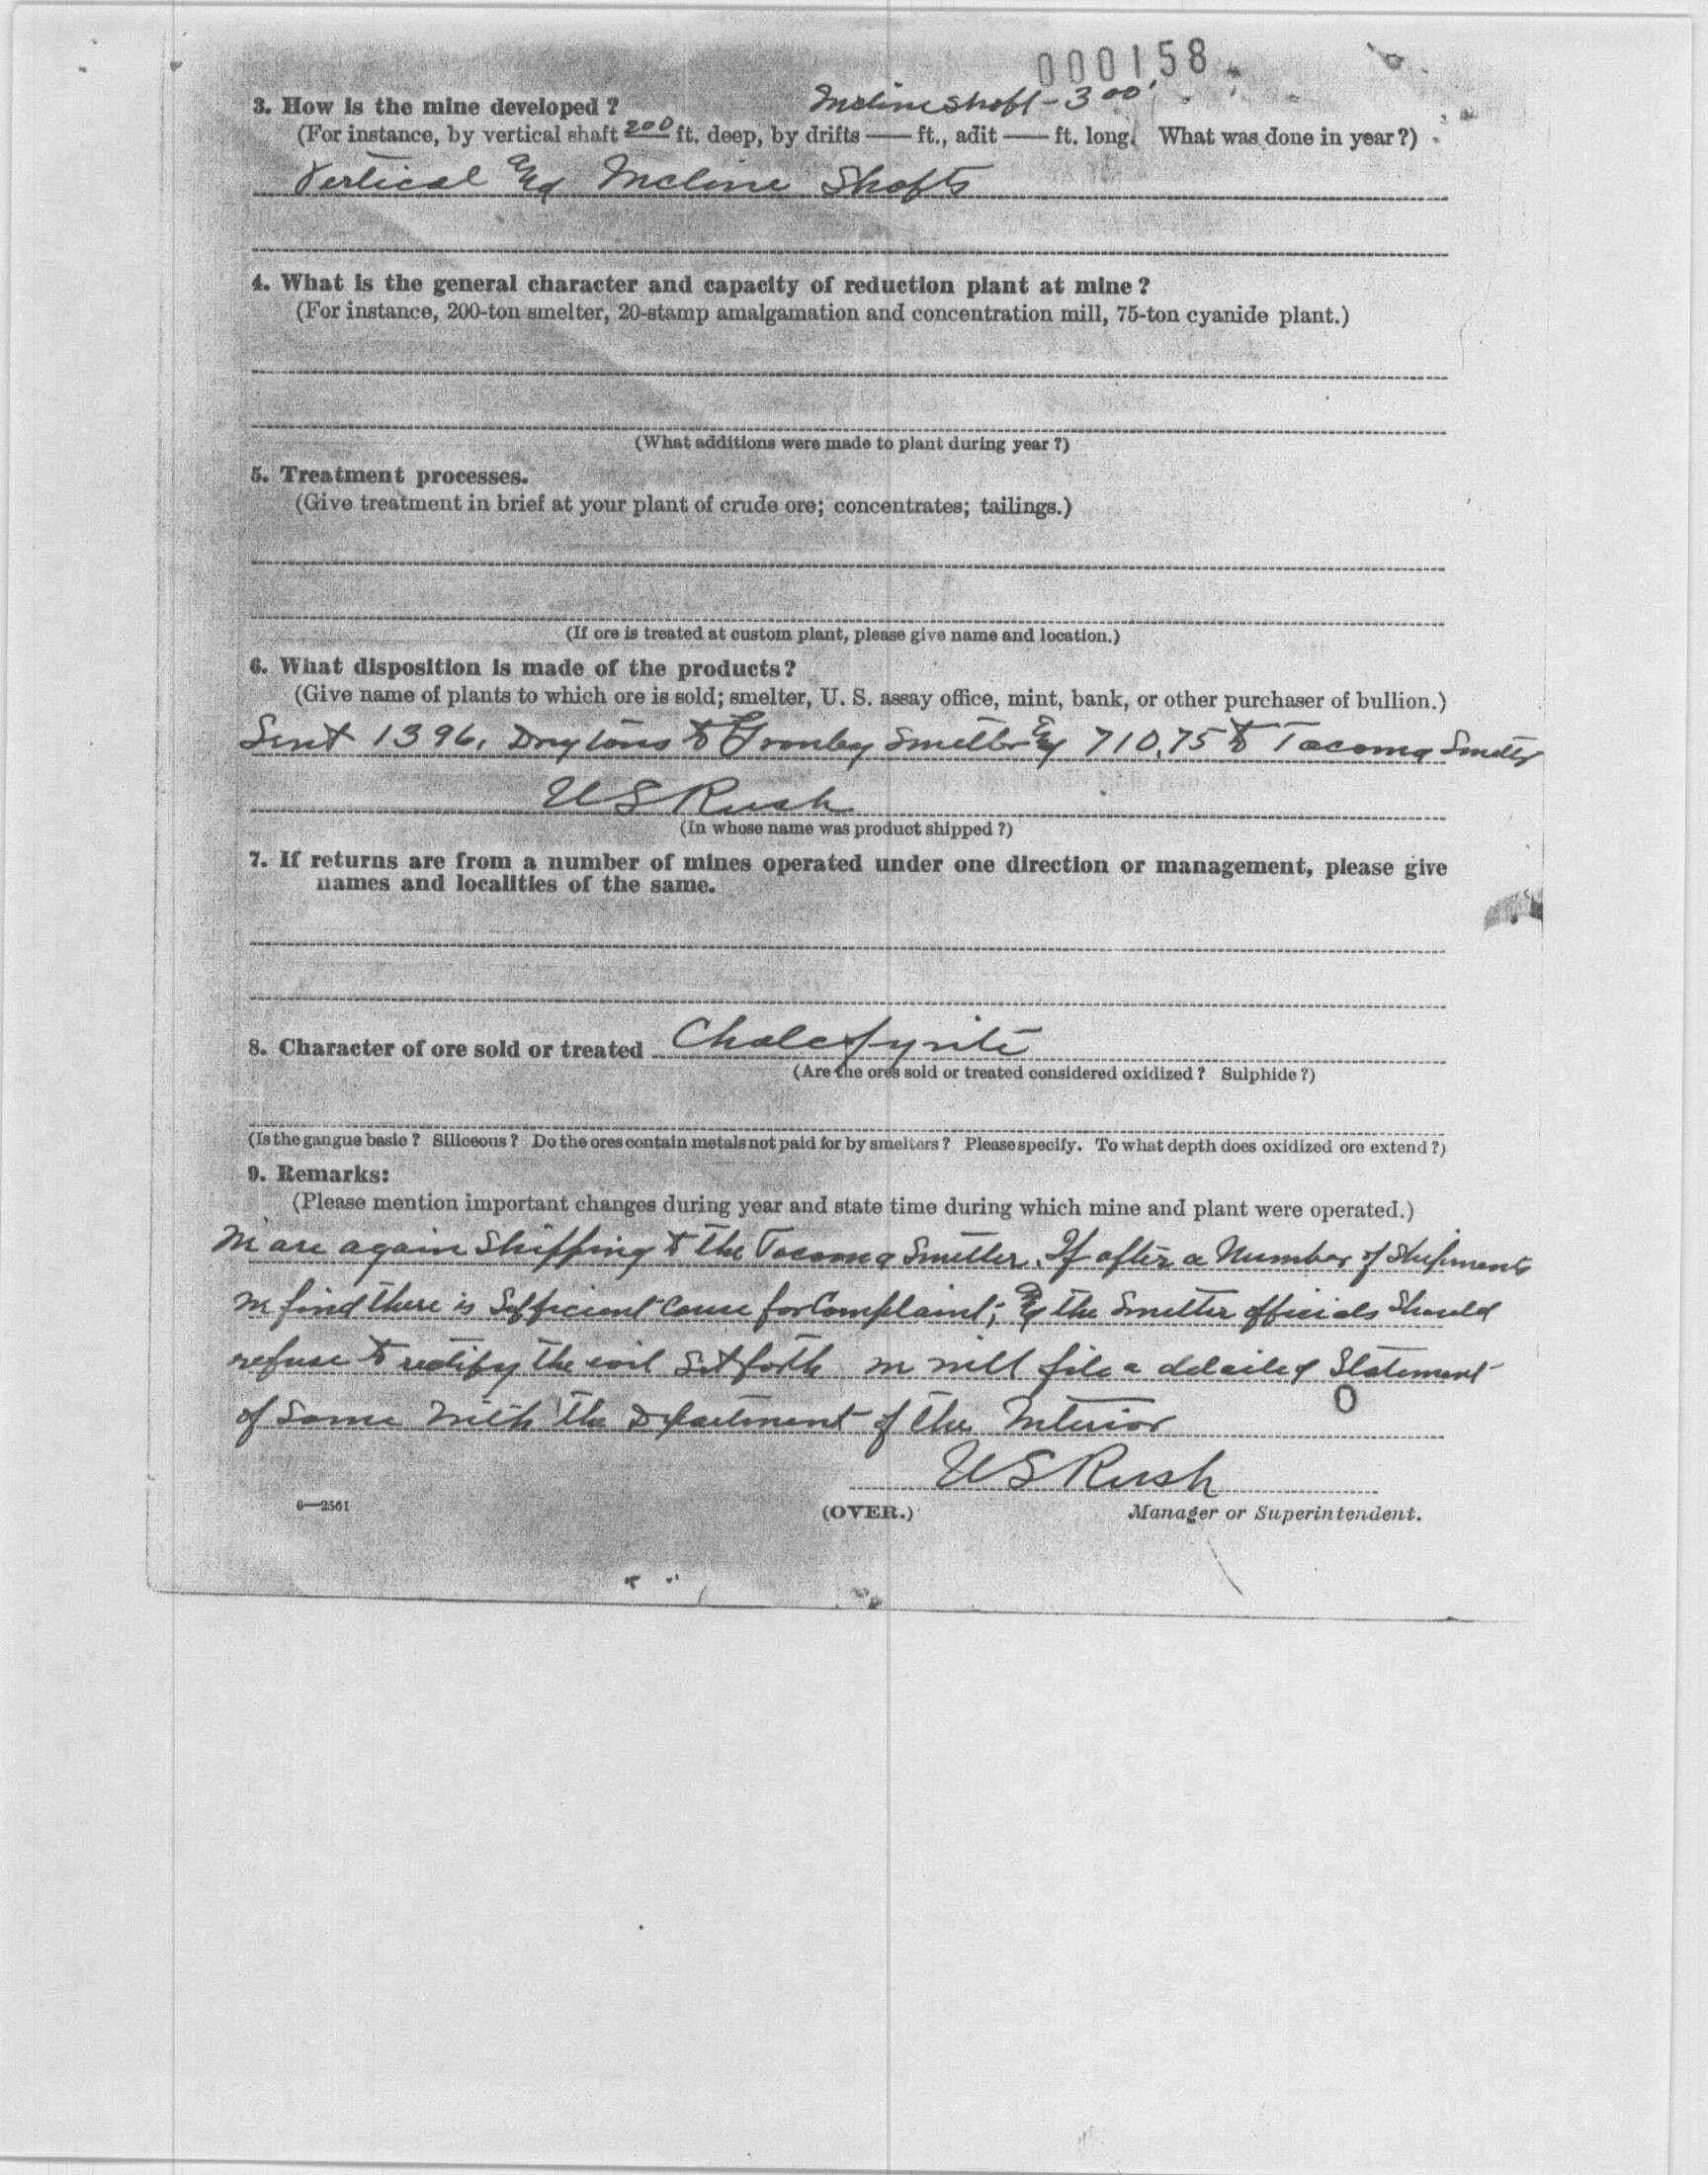 000158
Incline shaft - 300'
3. How is the mine developed ?
(For instance, by vertical shaft 200 ft. deep, by drifts —— ft., adit —— ft. long. What was done in year ?)
Vertical and Incline Shafts
4. What is the general character and capacity of reduction plant at mine ?
(For instance, 200-ton smelter, 20-stamp amalgamation and concentration mill, 75-ton cyanide plant.)
(What additions were made to plant during year ?)
5. Treatment processes.
(Give treatment in brief at your plant of crude ore; concentrates; tailings.)
(If ore is treated at custom plant, please give name and location.)
6. What disposition is made of the products?
(Give name of plants to which ore is sold; smelter, U. S. assay office, mint, bank, or other purchaser of bullion.)
Sent 1396. Dry tons to Granby Smelter and 710.75 to Tacoma Smelter
U S Rush
(In whose name was product shipped ?)
7. If returns are from a number of mines operated under one direction or management, please give
names and localities of the same.
8. Character of ore sold or treated Chalcpyrite
(Are the ores sold or treated considered oxidized ? Sulphide ?)
(Is the gangue basic ? Siliceous ? Do the ores contain metals not paid for by smelters ? Please specify. To what depth does oxidized ore extend ?)
9. Remarks:
(Please mention important changes during year and state time during which mine and plant were operated.)
We are again Shipping to the Tacoma Smelter. If after a Number of Shipments
we find there is Sufficient Cause for Complaint; and the Smelter officials Should
refuse to rectify the evil Set forth we will file a detailed Statement
of Same With the Department of the Interior
U S Rush
6—2561
(OVER.)
Manager or Superintendent.